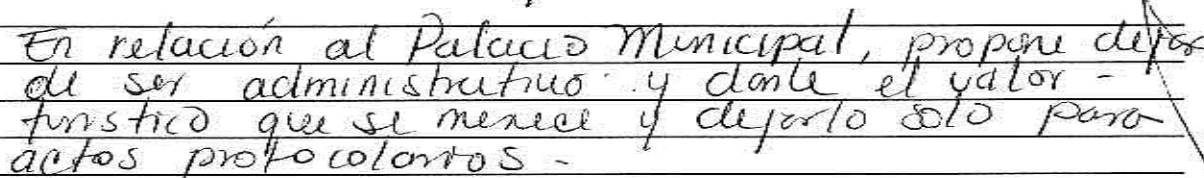 En relación al Palacio Municipal, propone dejar
de ser administrativo y darle el valor -
turístico que se merece y dejarlo solo para
actos protocolarios -